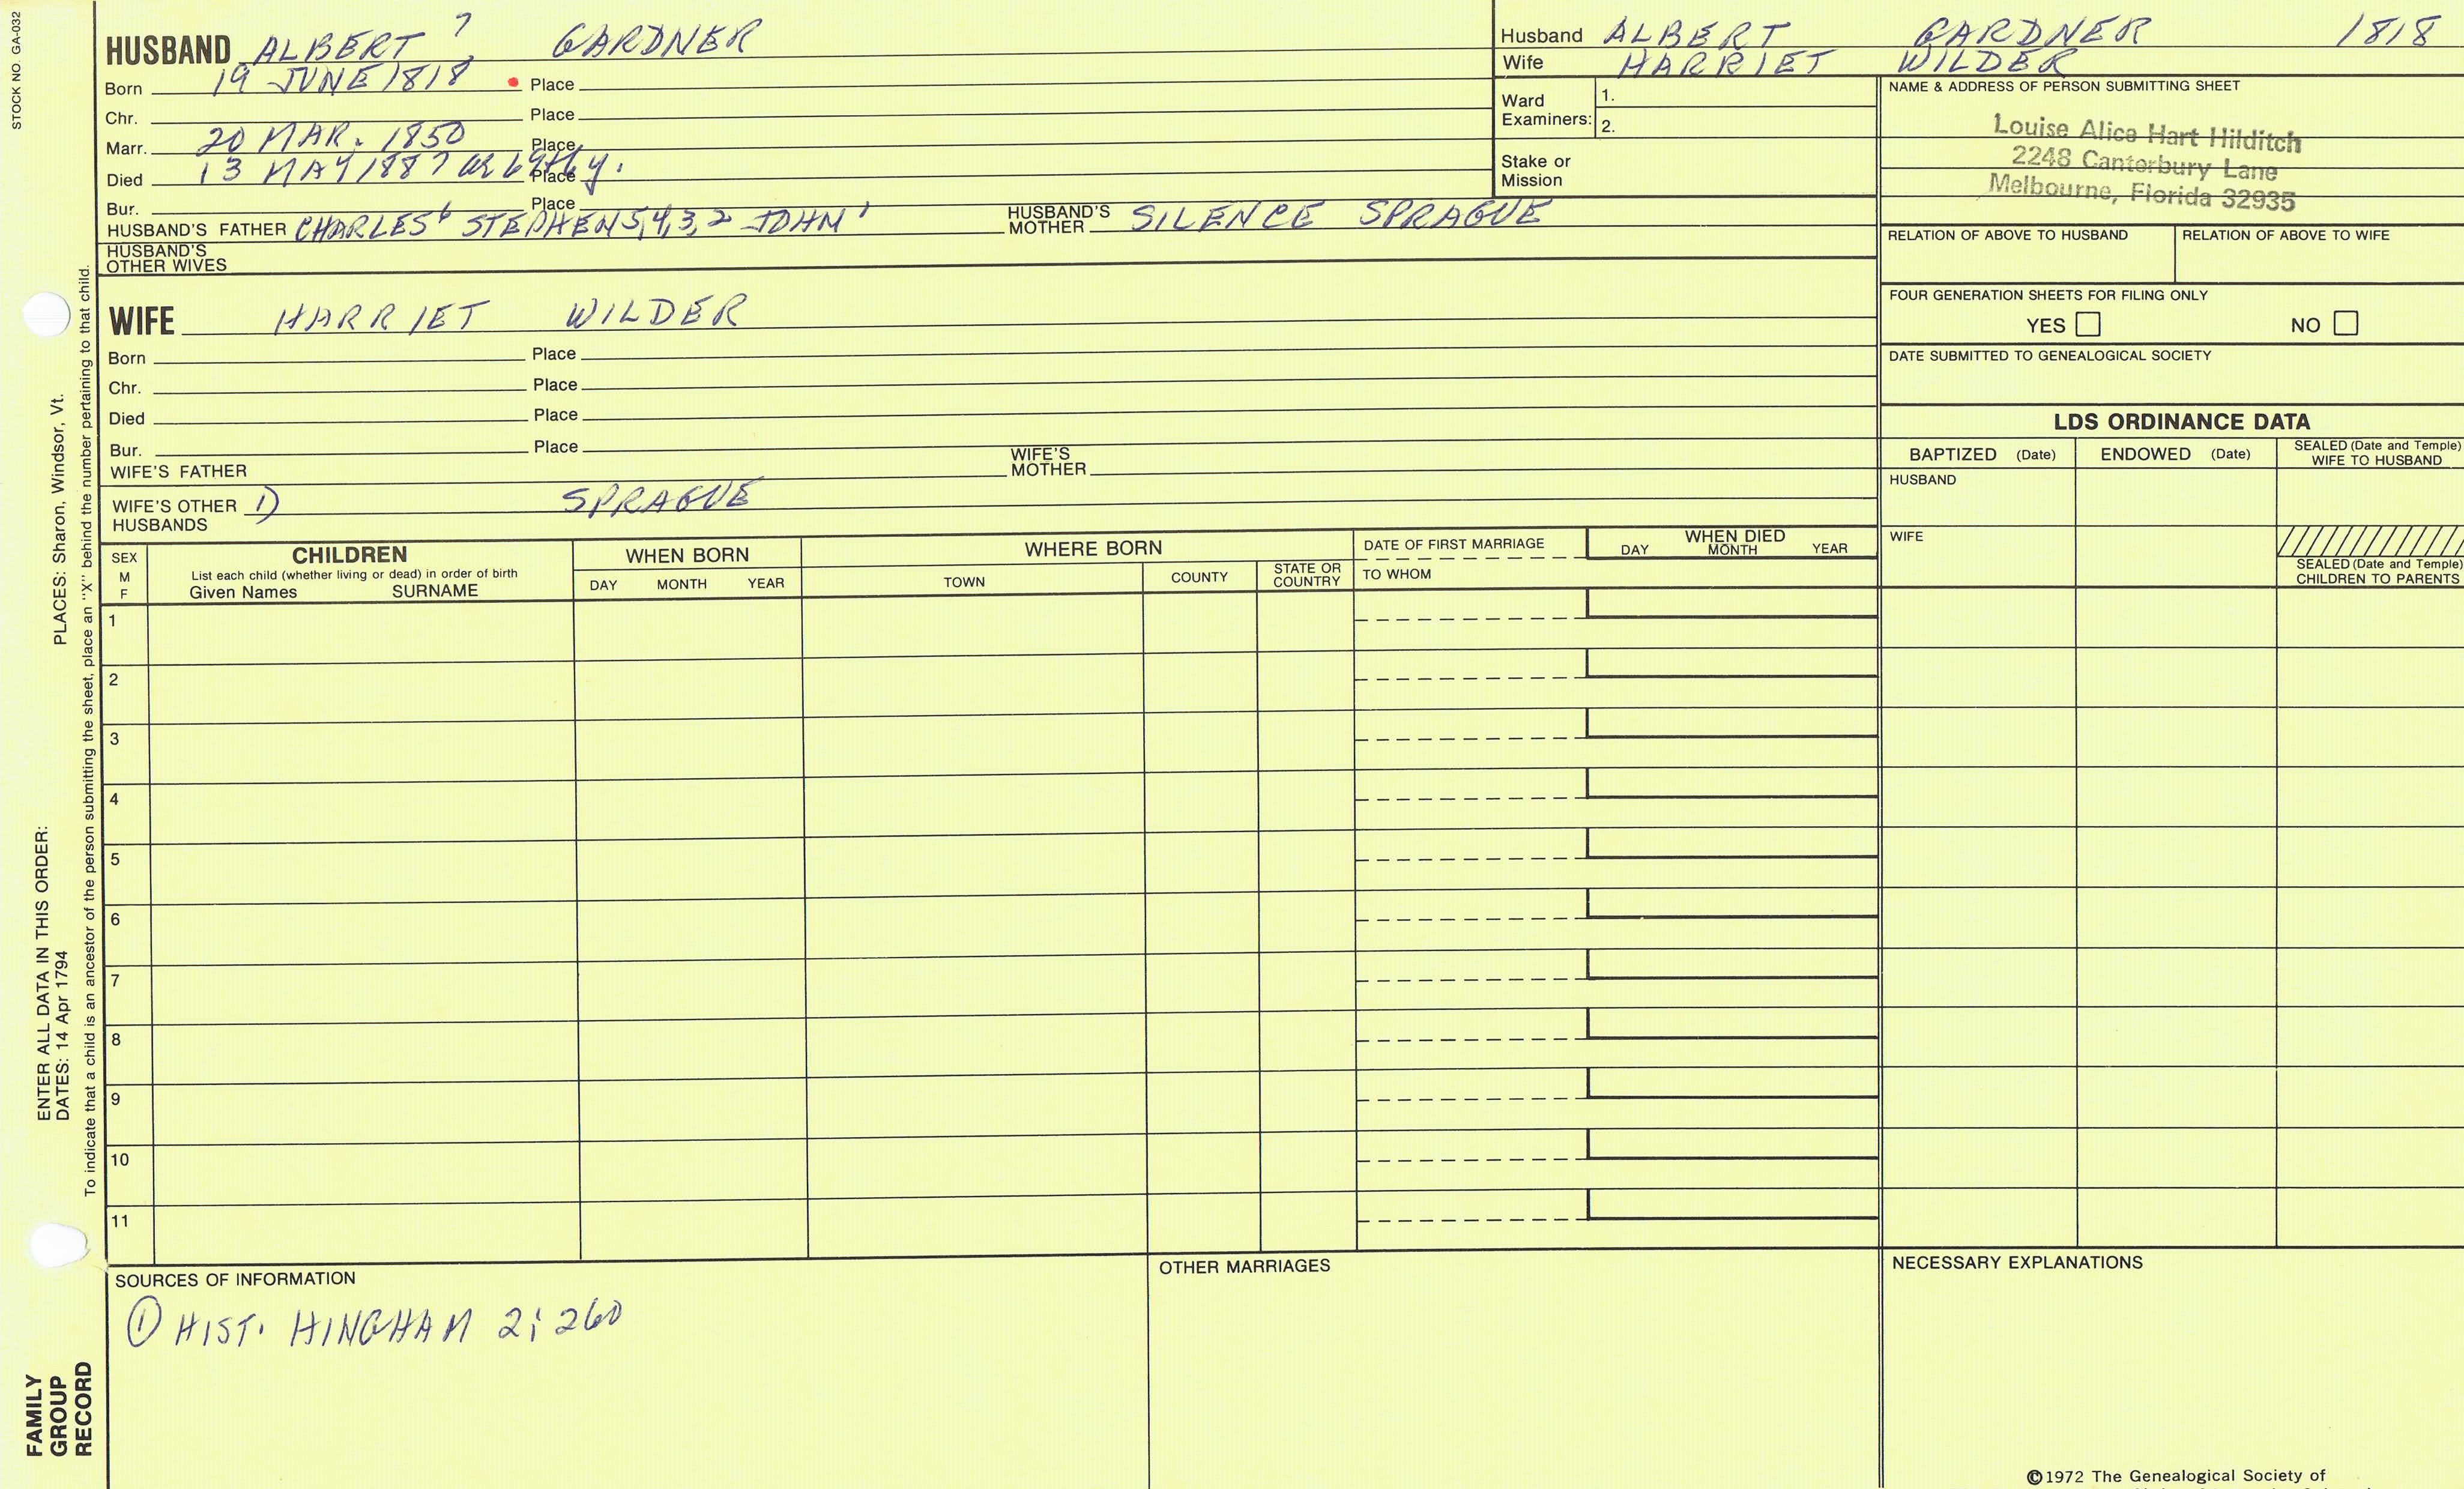 STOCK NO. GA-032
HUSBAND ALBERT 7 GARDNER
Born 19 JUNE 1818 Place
Chr. Place
Marr. 20 MAR. 1850 Place
Died 13 MAY 1887 Place
Bur. Place
HUSBAND'S FATHER CHARLES 6 STEPHEN 5,4,3,2 JOHN 1 HUSBAND'S MOTHER SILENCE SPRAGUE
HUSBAND'S OTHER WIVES
WIFE HARRIET WILDER
Born Place
Chr. Place
Died Place
Bur. Place
WIFE'S FATHER WIFE'S MOTHER
WIFE'S OTHER HUSBANDS 1) SPRAGUE
Husband ALBERT GARDNER 1818
Wife HARRIET WILDER
Ward Examiners: 1.
2.
Stake or Mission
NAME & ADDRESS OF PERSON SUBMITTING SHEET
Louise Alice Hart Hilditch
2248 Canterbury Lane
Melbourne, Florida 32935
RELATION OF ABOVE TO HUSBAND RELATION OF ABOVE TO WIFE
FOUR GENERATION SHEETS FOR FILING ONLY
YES NO
DATE SUBMITTED TO GENEALOGICAL SOCIETY
LDS ORDINANCE DATA
BAPTIZED (Date) ENDOWED (Date) SEALED (Date and Temple) WIFE TO HUSBAND
HUSBAND
WIFE
SEALED (Date and Temple) CHILDREN TO PARENTS
SEX M F
CHILDREN
List each child (whether living or dead) in order of birth
Given Names SURNAME
WHEN BORN
DAY MONTH YEAR
WHERE BORN
TOWN COUNTY STATE OR COUNTRY
DATE OF FIRST MARRIAGE
TO WHOM
WHEN DIED
DAY MONTH YEAR
1
2
3
4
5
6
7
8
9
10
11
SOURCES OF INFORMATION
① HIST. HINGHAM 2; 260
OTHER MARRIAGES
NECESSARY EXPLANATIONS
©1972 The Genealogical Society of
ENTER ALL DATA IN THIS ORDER:
DATES: 14 Apr 1794 PLACES: Sharon, Windsor, Vt.
To indicate that a child is an ancestor of the person submitting the sheet, place an "X" behind the number pertaining to that child.
FAMILY
GROUP
RECORD